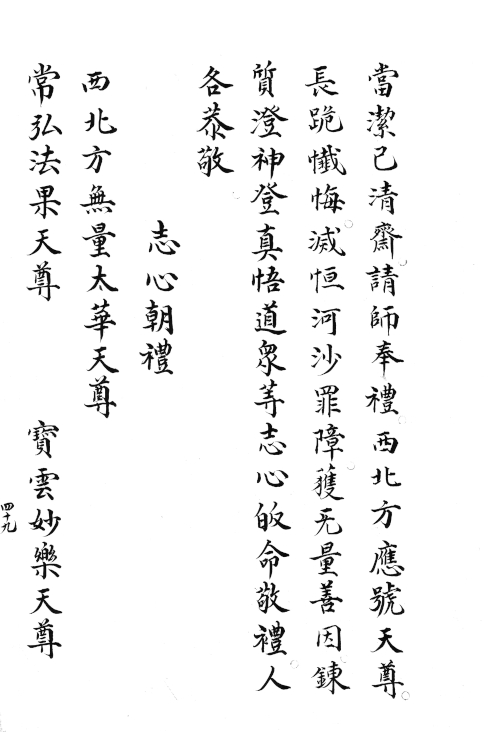 當潔己清齋請師奉禮西北方應號天尊
長跪懺悔滅恒河沙罪障蒦无量善因錬
質澄神登真悟道眾䓁志心皈命敬禮人
各恭敬
志心朝禮
西北方無量太華天尊
常弘法果天尊　寶雲妙樂天尊
四十九